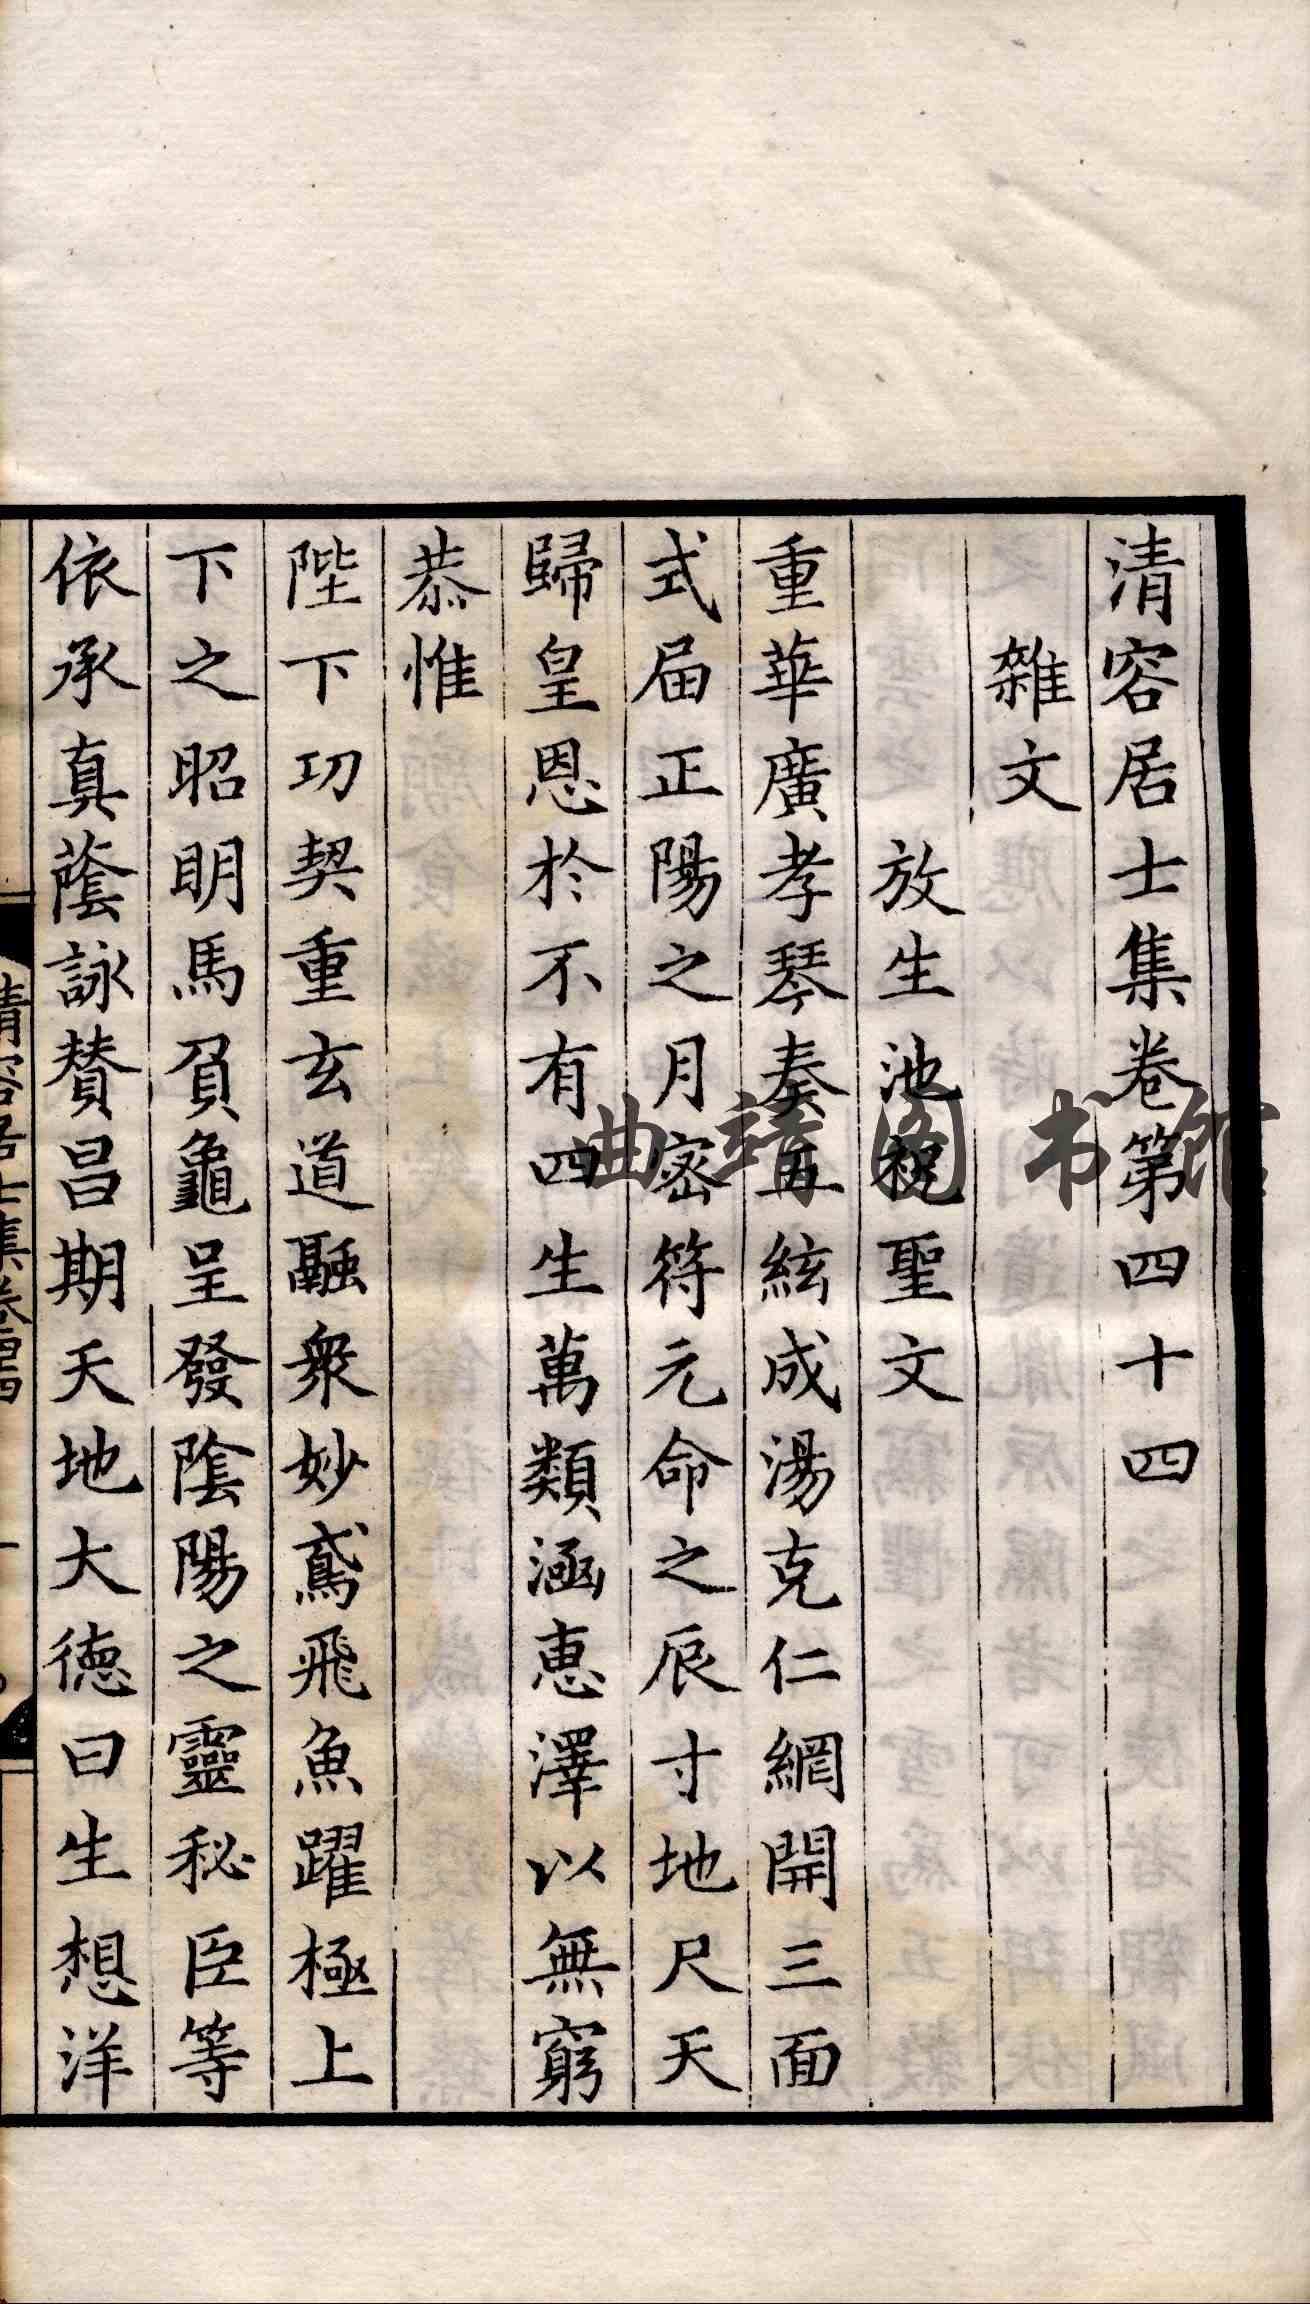 清容居士集卷第四十四
雜文
放生池祝聖文
重華廣孝琴奏五絃成湯克仁網開三面
式届正陽之月密符元命之辰寸地尺天
歸皇恩於不有四生萬類涵惠澤以無窮
恭惟
陛下功契重玄道融衆妙鳶飛魚躍極上
下之昭明馬負龜呈發陰陽之靈秘臣等
依承真蔭詠賛昌期天地大德曰生想洋
清容居士集卷四十四
一
曲靖图书馆